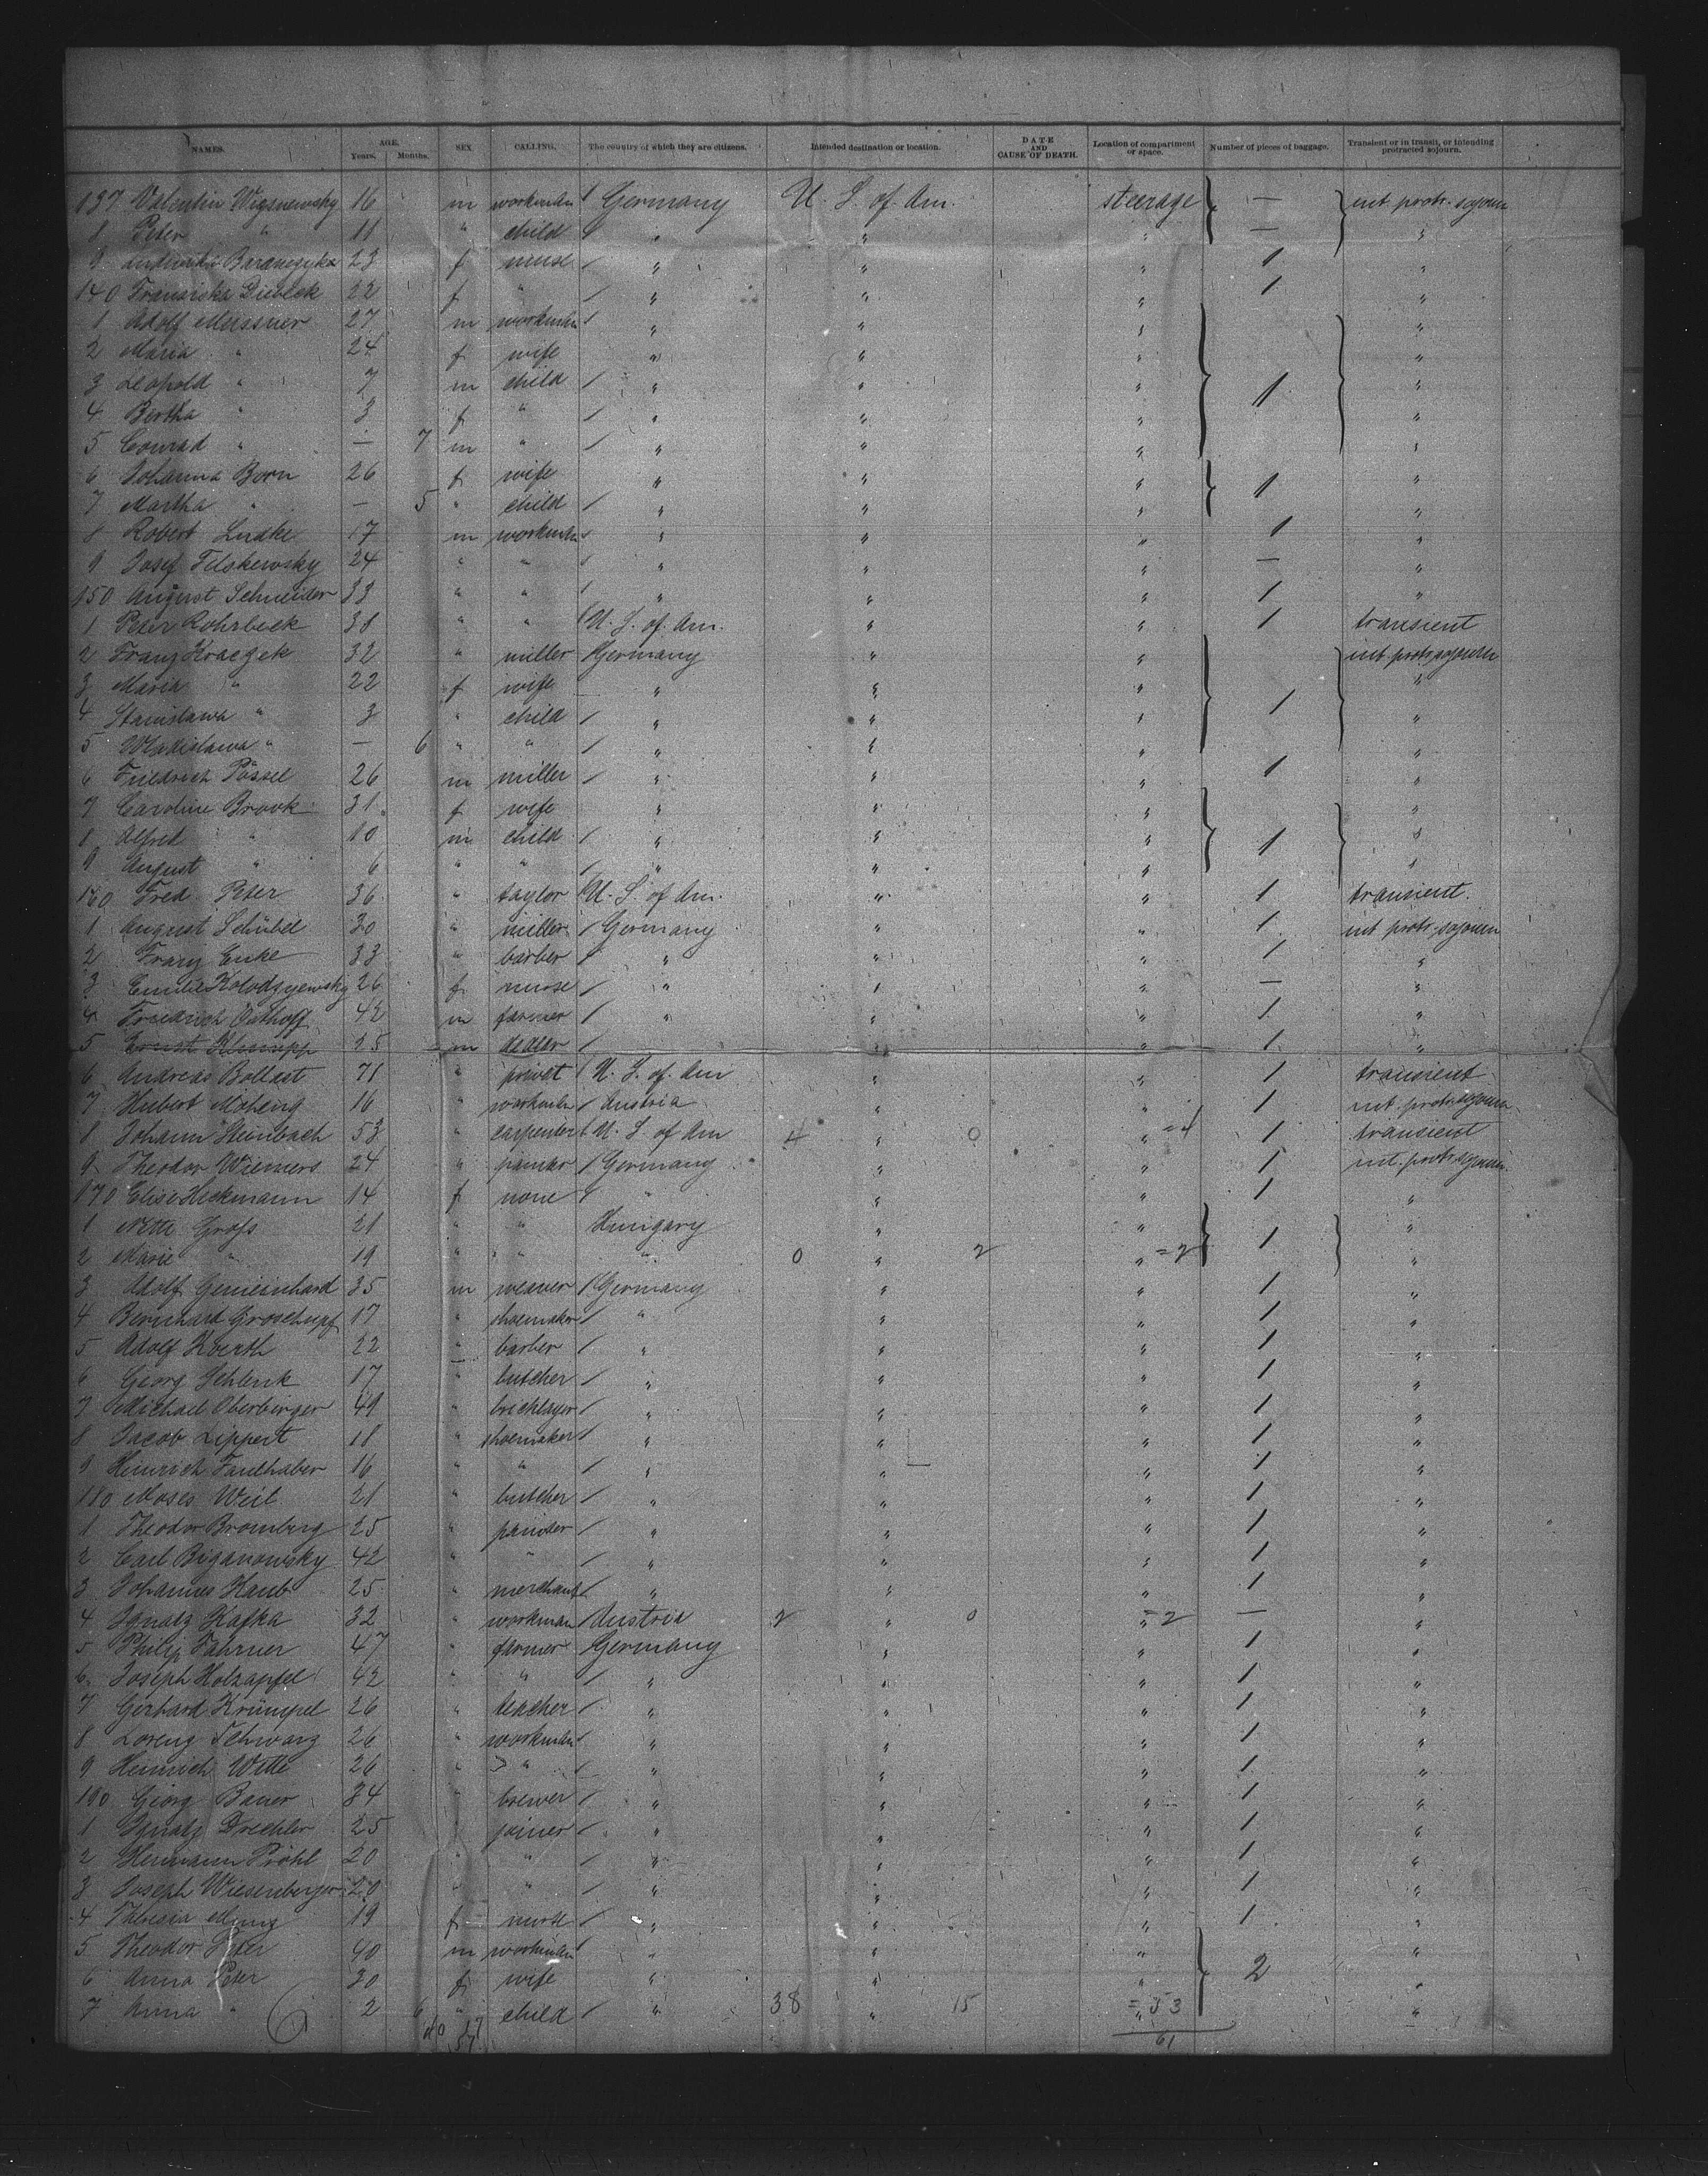 NAMES. AGE. Years. Months. SEX. CALLING. The country of which they are citizens. Intended destination or location. DATE AND CAUSE OF DEATH. Location of compartment or space. Number of pieces of baggage. Transient or in transit, or intending protracted sojourn.
137 Valentin Wigsnewsky 16 m workman / Germany U. S. of Am. steerage — int protr. sojourn
8 Peter " 11 " child / " " " — "
9 23 f nurse / " " " 1 "
140 Franziska 22 f " / " " " 1 "
1 Adolf Meissner 27 m workman / " " " "
2 Maria " 24 f wife " " " "
3 Leopold " 7 m child / " " " 1 "
4 Bertha " 3 f " / " " " "
5 Conrad " — 7 m " / " " " "
6 Johanna Born 26 f wife " " " 1 "
7 Martha " — 5 " child / " " " "
8 Robert Ludke 17 m workman / " " " 1 "
9 Josef Felskewsky 24 " " / " " " — "
150 August Schneider 33 " " / " " " 1 "
1 Peter Rohrbeck 38 " " / U. S. of Am. " " 1 transient
2 Franz Kraezek 32 " miller / Germany " " int protr. sojourn
3 Maria " 22 f wife " " " "
4 Stanislawa " 3 " child / " " " 1 "
5 Wladislawa " — 6 " " / " " " "
6 Friedrich Pössel 26 m miller / " " " 1 "
7 Caroline Brook 31 f wife " " " "
8 Alfred " 10 m child / " " " 1 "
9 August " 6 " " / " " " "
160 Fred. Peter 36 " taylor / U. S. of Am. " " 1 transient.
1 August Schübel 30 " miller / Germany " " 1 int protr. sojourn
2 Franz Enke 33 " barber / " " " 1 "
3 Emilie Kolodzyewsky 26 f nurse / " " " — "
4 Friedrich Osthoff 42 m farmer / " " " 1 "
5 Ernst 25 m dealer / " " 1 "
6 Andreas Ballast 71 " privat / U. S. of Am " " 1 transient
7 Hubert Moheng 16 " workman / Austria " " 1 int. protr. sojourn
8 Johann Steinbach 53 " carpenter / U. S. of Am 4 " 0 " =4 1 transient
9 Theodor Wiemers 24 " painter / Germany " " 1 int. protr. sojourn
170 Elise Heckmann 14 f none / " " " 1 "
1 Netti Gross 21 " " Hungary " " 1 "
2 Marie " 19 " " " 0 " 2 " =2 "
3 Adolf Gemeinhard 35 m weaver / Germany " " 1 "
4 Bernhard Groschupf 17 " shoemaker / " " " 1 "
5 Adolf Koerth 22 " barber / " " " 1 "
6 Georg Schlenk 17 " butcher / " " " 1 "
7 Michael Oberberger 49 " bricklayer / " " " 1 "
8 Jacob Lippert 18 " shoemaker / " " " 1 "
9 Heinrich Faulhaber 16 " " / " " " 1 "
180 Moses Weil 21 " butcher / " " " 1 "
1 Theodor Bromberg 25 " painter / " " " 1 "
2 Carl Biganowsky 42 " " / " " " 1 "
3 Johannes Haub 25 " merchant / " " " 1 "
4 Ignatz Kafka 32 " workman / Austria 2 " 0 " =2 — "
5 Philip Fahrner 47 " farmer / Germany " " 1 "
6 Joseph Holzapfel 42 " " / " " " 1 "
7 Gerhard Krümpel 26 " teacher / " " " 1 "
8 Lorenz Schwarz 26 " workman / " " " 1 "
9 Heinrich Witte 26 " " / " " " 1 "
190 Georg Bauer 34 " brewer / " " " 1 "
1 Ignatz Drechler 25 " joiner / " " " 1 "
2 Hermann Pröhl 20 " " / " " " 1 "
3 Joseph Wiesenberger 20 " " / " " " 1 "
4 Theresia Menz 19 f nurse / " " " 1 "
5 Theodor Peter 40 m workman / " " " "
6 Anna Peter 30 f wife " " " 2 "
7 Anna " 2 6 " child / " 38 " 15 " =53 "
61